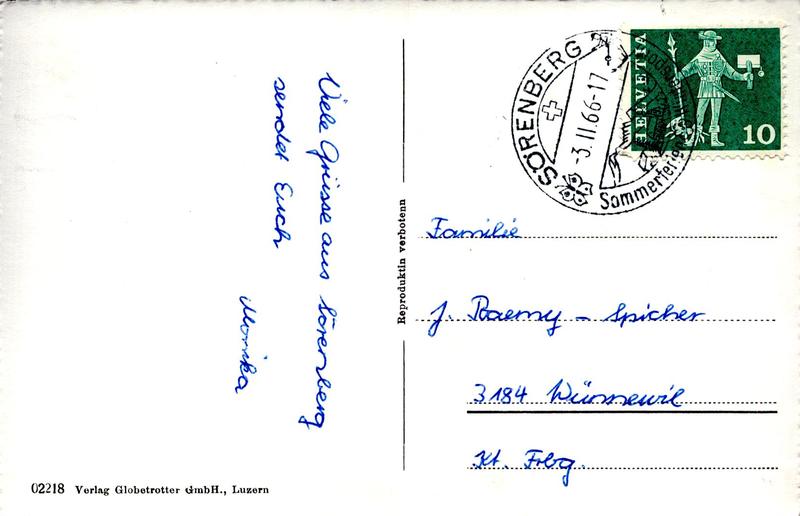 Viele Grüsse aus Sörenberg
sendet Euch
Monika
02218 Verlag Globetrotter GmbH., Luzern
Reproduktin verbotenn
SÖRENBERG
-3.II.66-17
Sommerferien
HELVETIA
10
Familie
J. Raemy - Spicher
3184 Wünnewil
Kt. Frbg.